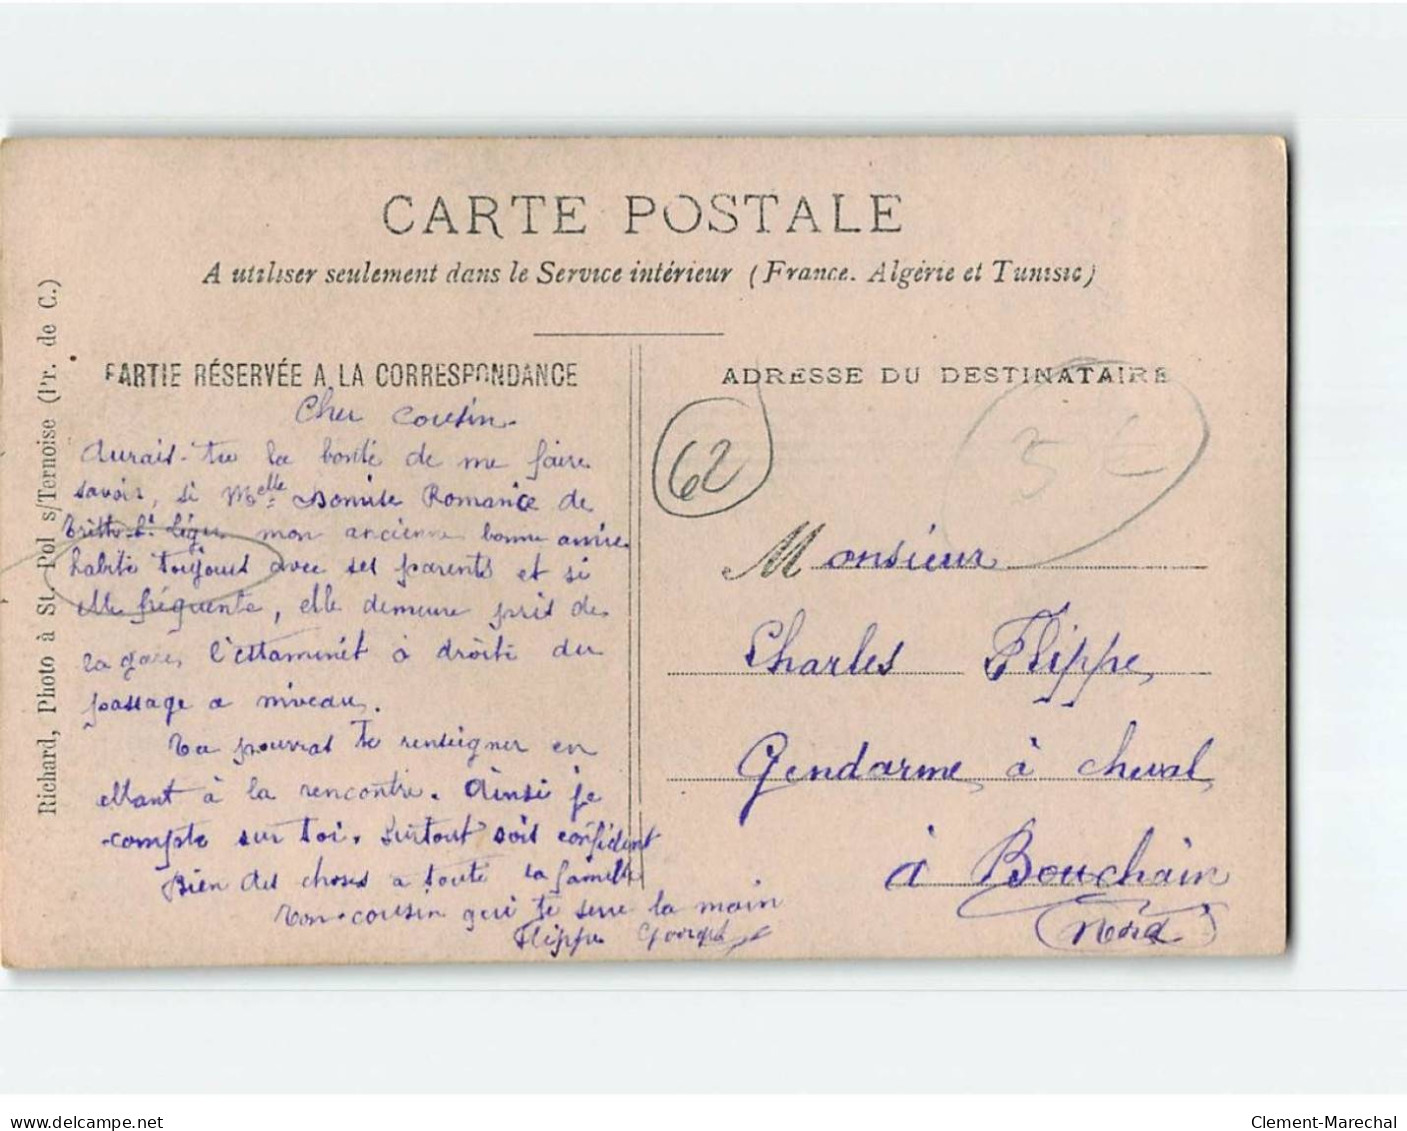 CARTE POSTALE
A utiliser seulement dans le Service intérieur (France. Algérie et Tunisie)
Richard, Photo à St. Pol s/Ternoise (Pr. de C.)
PARTIE RÉSERVÉE A LA CORRESPONDANCE
Cher Cousin.
Aurais-tu la bonté de me faire
savoir, si Melle Romance de
Trith-St Léger mon ancienne bonne amie
habite toujours avec ses parents et si
elle fréquente, elle demeure près de
la gare, l'estaminet à droite du
passage a niveau.
Tu pourras te renseigner en
allant à la rencontre. Ainsi je
compte sur toi. Surtout sois confident
Bien des choses a toute la famille
Ton cousin qui te serre la main
Flippe Georges
ADRESSE DU DESTINATAIRE
62
5 €
Monsieur
Charles Flippe
Gendarme à cheval
à Bouchain
(Nord)
www.delcampe.net
Clement-Marechal